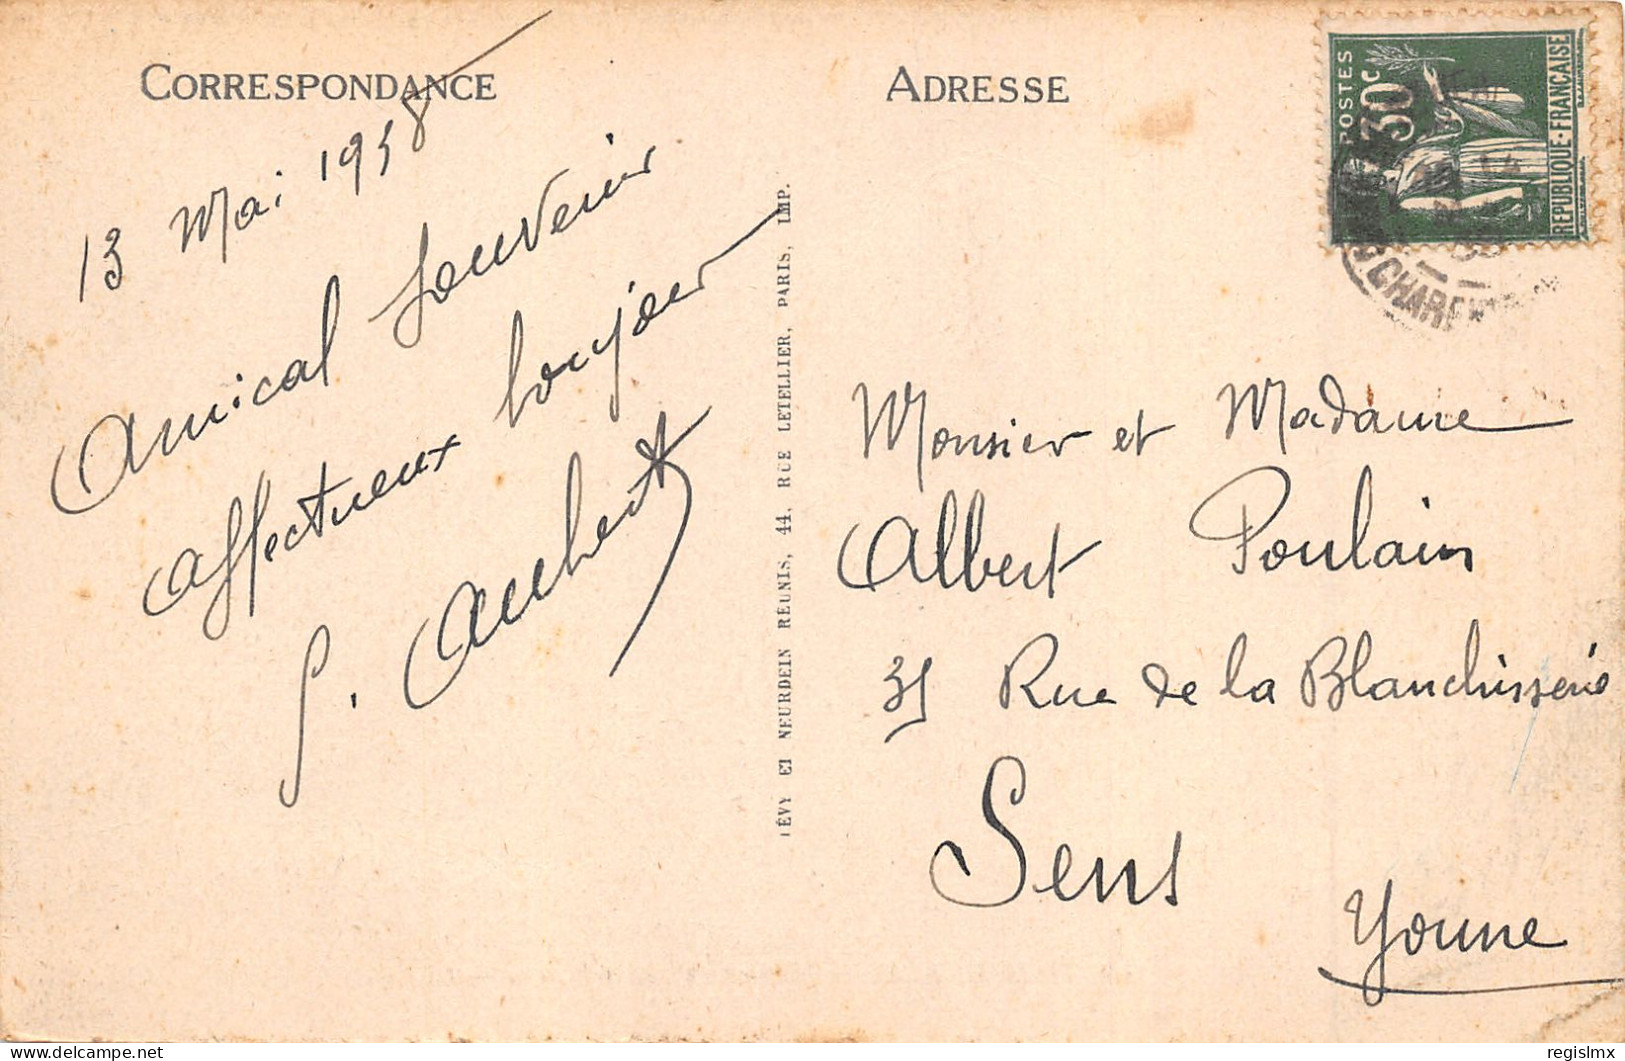 CORRESPONDANCE
13 Mai 1938
Amical Souvenir
affectueux bonjour
S. Aubert
LÉVY ET NEURDEIN RÉUNIS, 44, RUE LETELLIER, PARIS, IMP.
ADRESSE
POSTES
30c
REPUBLIQUE-FRANÇAISE
Monsier et Madame
Albert Poulain
35 Rue de la Blanchisserie
Sens
Yonne
delcampe.net
regislmx